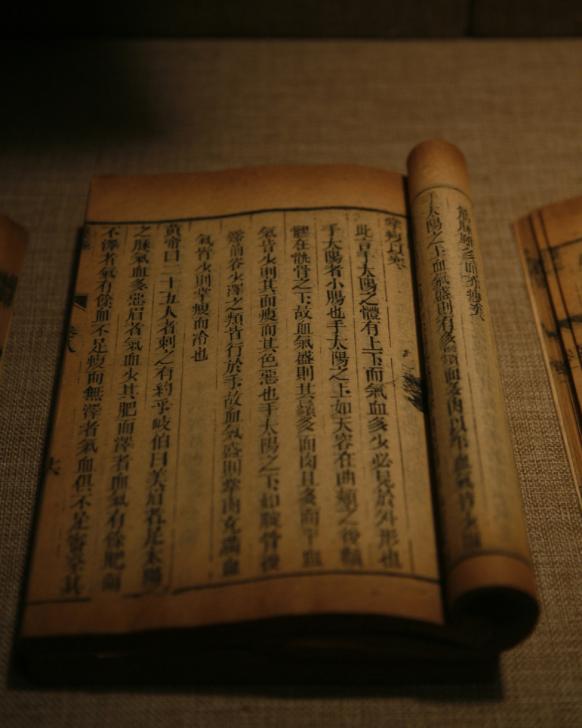 手太陽之上血氣盛則有多髯面多肉以平血氣皆少
此言手太陽之體有上下而氣血多少必見於外形也
手太陽者小腸也手太陽之上如天容在曲頰之後顴
髎在䪼骨之下故血氣盛則其鬚多而肉且多而平血
氣皆少則其面瘦而其色惡也手太陽之下如腕骨後
谿前谷少澤之類皆行於手故血氣盛則掌肉充滿血
氣皆少則掌瘦而冷也
黃帝曰二十五人者刺之有約乎岐伯曰美眉者足太陽
之脉氣血多惡眉者氣血少其肥而澤者血氣有餘肥而
不澤者氣有餘血不足瘦而無澤者氣血俱不足審察其